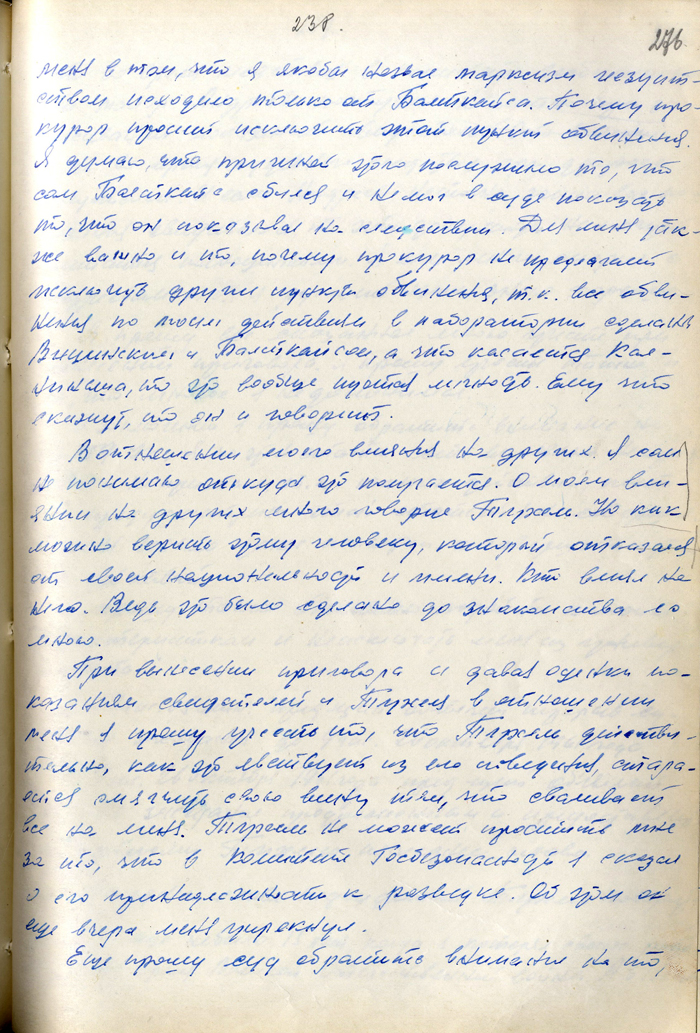 238.
276.
меня в том, что я якобы назвал марксизм иезуит-
ством исходило только от Балткайса. Почему про-
курор просит исключить этот пункт обвинения.
Я думаю, что причиной этого послужило то, что
сам Балткайс сбился и не мог в суде показать
то, что он показывал на следствии. Для меня так-
же важно и то, почему прокурор не предлагает
исключить другие пункты обвинения, т.к. все обви-
нения по моим действиям в лаборатории сделаны
и Балткайсом, а что касается Кал-
ниньша, то это вообще пустая личность. Ему что
скажут, то он и говорит.
В отношении моего влияния на других. Я сам
не понимаю откуда это получается. О моем вли-
янии на других много говорил Тыржел. Но как
можно верить этому человеку, который отказался
от своей национальности и имени. Кто влиял на
него. Ведь это было сделано до знакомства со
мною.
При вынесении приговора и давая оценки по-
казаниям свидетелей и в отношении
меня я прошу учесть то, что действи-
тельно, как это явствует из его поведения, стара-
ется смягчить свою вину тем, что сваливает
все на меня. не может простить мне
за то, что в Комитете Госбезопасности я сказал
о его принадлежности к разведке. Об этом он
еще вчера меня упрекнул.
Еще прошу суд обратить внимание на то,